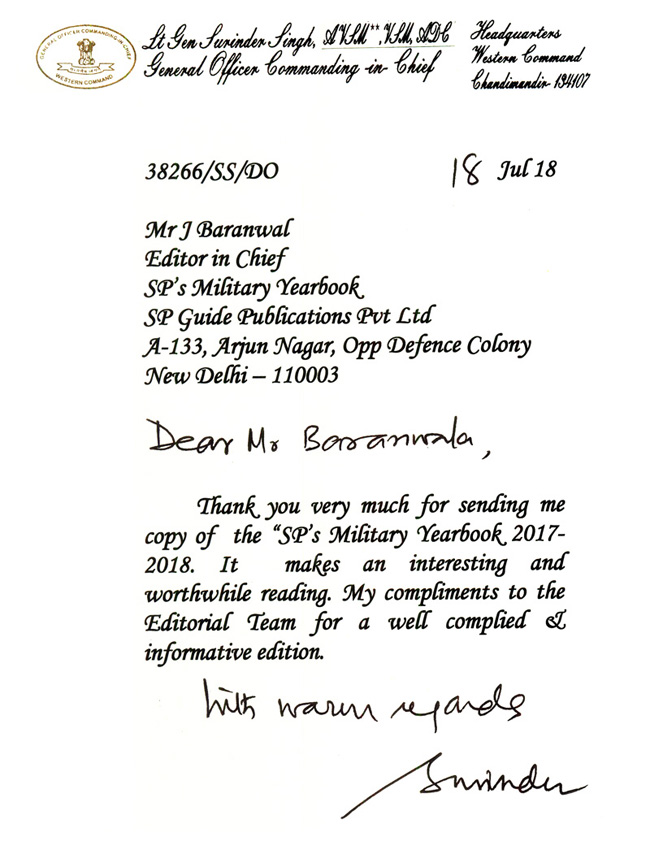 GENERAL OFFICER COMMANDING-IN-CHIEF
WESTERN COMMAND
Lt Gen Surinder Singh, AVSM**, VSM, ADC
General Officer Commanding-in-Chief
Headquarters
Western Command
Chandimandir-134107
38266/SS/DO
18 Jul 18
Mr J Baranwal
Editor in Chief
SP's Military Yearbook
SP Guide Publications Pvt Ltd
A-133, Arjun Nagar, Opp Defence Colony
New Delhi – 110003
Dear Mr Baranwala,
Thank you very much for sending me
copy of the “SP's Military Yearbook 2017-
2018. It makes an interesting and
worthwhile reading. My compliments to the
Editorial Team for a well complied &
informative edition.
With warm regards
Surinder